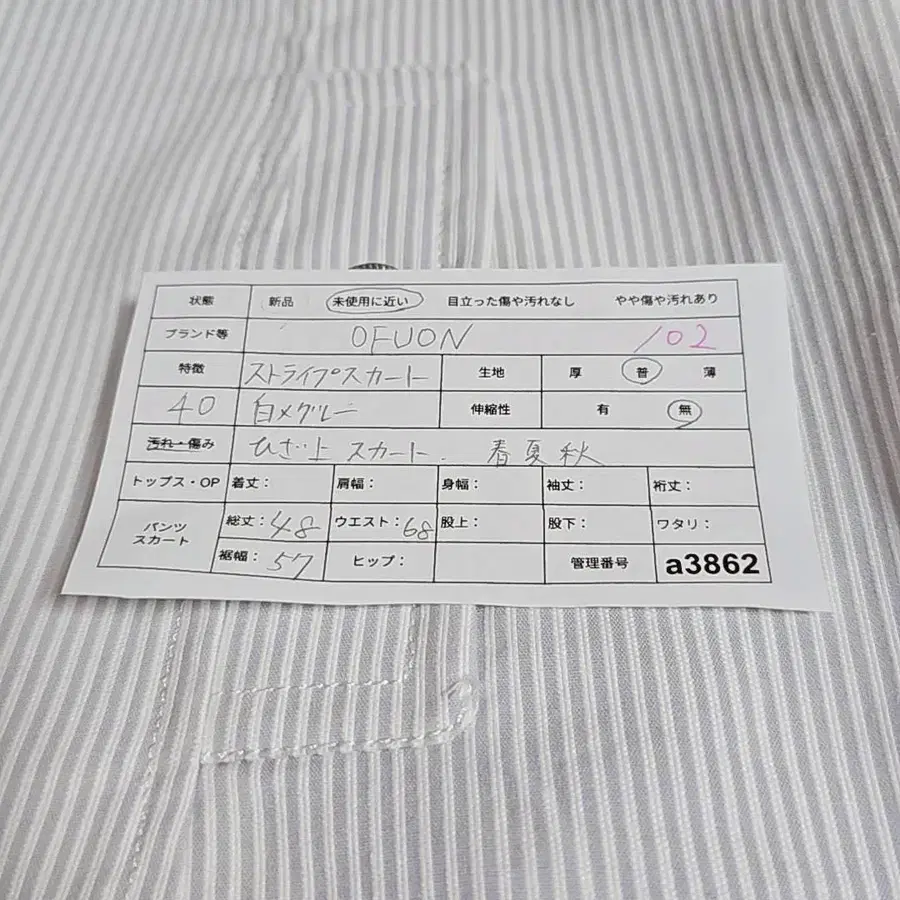 状態 新品 未使用に近い 目立った傷や汚れなし やや傷や汚れあり
ブランド等 OFUON 102
特徴 ストライプスカート 生地 厚 普 薄
40 白×グレー 伸縮性 有 無
汚れ・傷み ひざ上スカート. 春夏秋
トップス・OP 着丈: 肩幅: 身幅: 袖丈: 裄丈:
パンツ スカート 総丈:48 ウエスト:68 股上: 股下: ワタリ:
裾幅:57 ヒップ: 管理番号 a3862